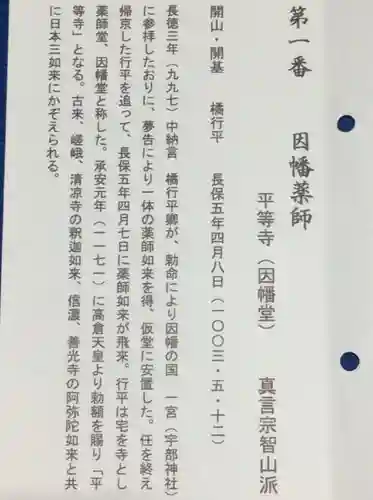 第一番　因幡薬師
平等寺（因幡堂）　真言宗智山派
開山・開基　橘行平　長保五年四月八日（一〇〇三・五・十二）
長徳三年（九九七）中納言　橘行平卿が、勅命により因幡の国　一宮（宇部神社）
に参拝したおりに、夢告により一体の薬師如来を得、仮堂に安置した。任を終え
帰京した行平を追って、長保五年四月七日に薬師如来が飛来。行平は宅を寺とし
薬師堂、因幡堂と称した。承安元年（一一七一）に高倉天皇より勅額を賜り「平
等寺」となる。古来、嵯峨、清凉寺の釈迦如来、信濃、善光寺の阿弥陀如来と共
に日本三如来にかぞえられる。